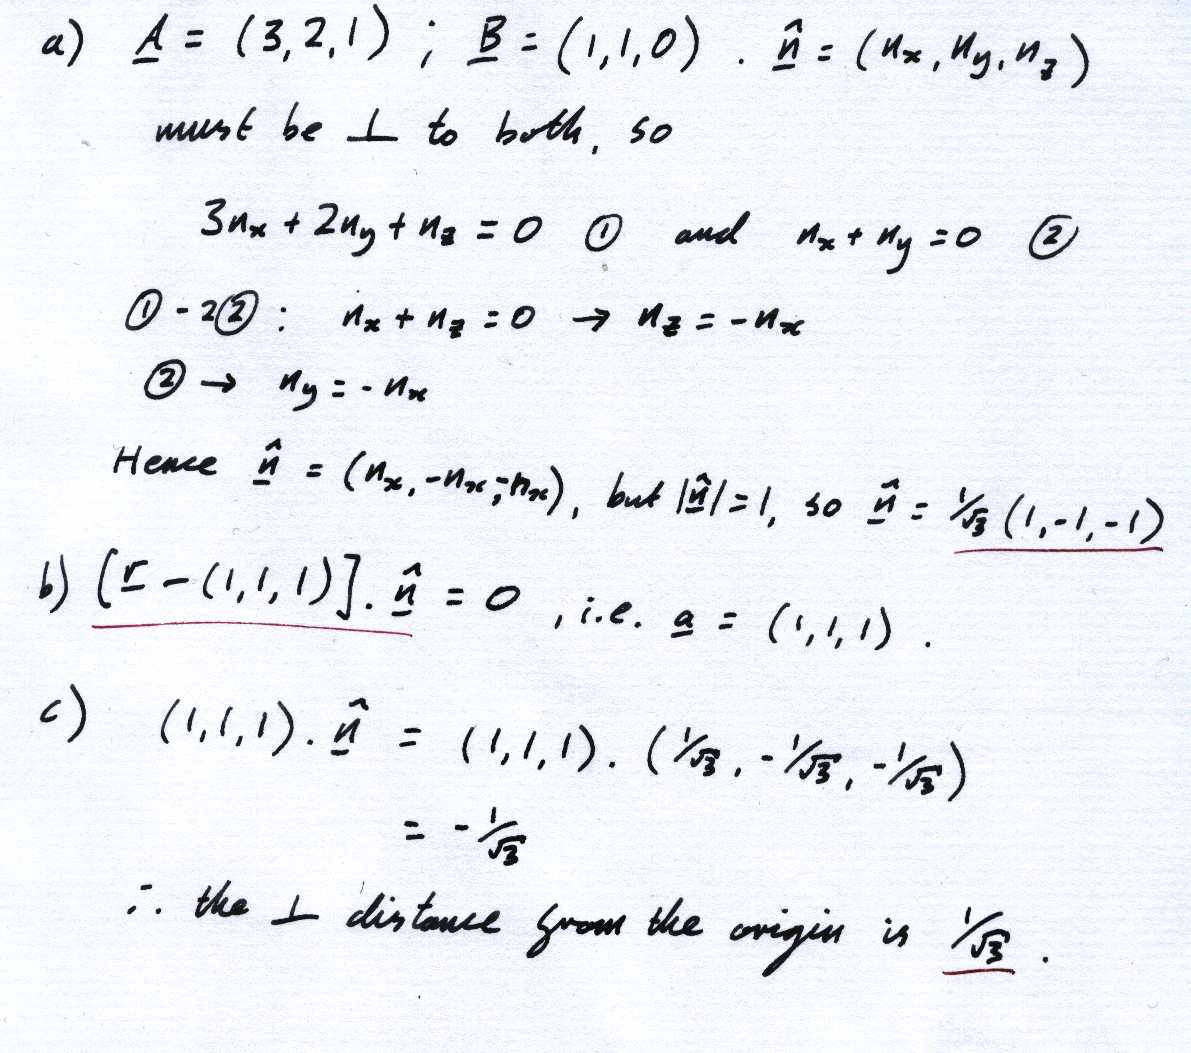 a) A = (3,2,1) ; B = (1,1,0) . n̂ = (nx, ny, nz)
must be ⊥ to both, so
3nx + 2ny + nz = 0 ① and nx + ny = 0 ②
① - 2② : nx + nz = 0 → nz = -nx
② → ny = - nx
Hence n̂ = (nx, -nx, -nx), but |n̂| = 1, so n̂ = 1/√3 (1,-1,-1)
b) [r - (1,1,1)] . n̂ = 0 , i.e. a = (1,1,1) .
c) (1,1,1) . n̂ = (1,1,1) . (1/√3, -1/√3, -1/√3)
= -1/√3
∴ the ⊥ distance from the origin is 1/√3 .